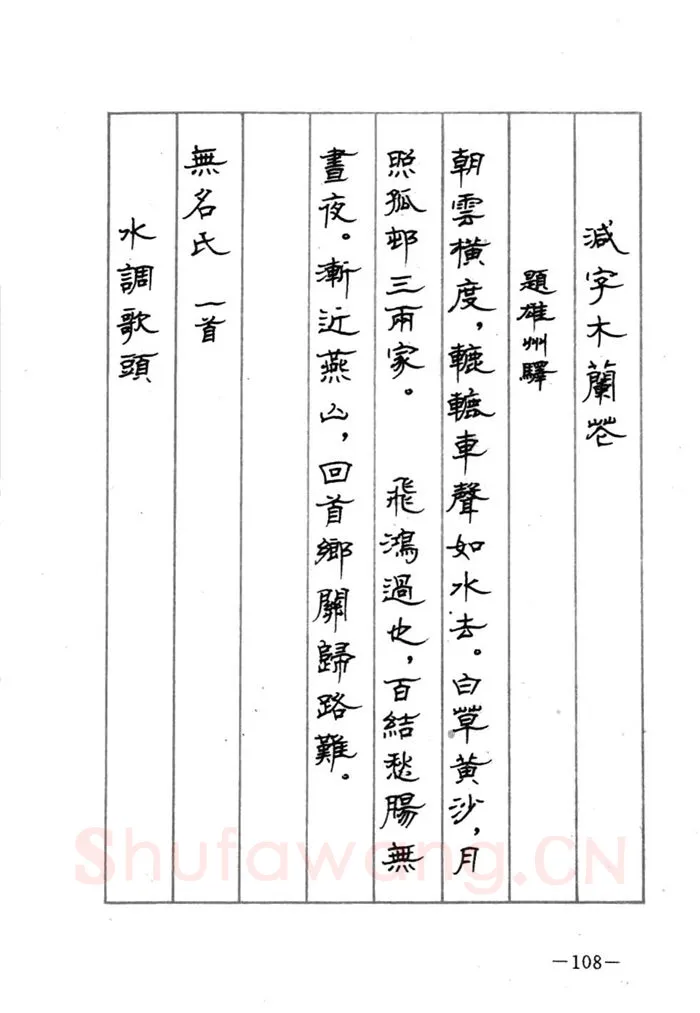 減字木蘭花
題雄州驛
朝雲橫度，轆轆車聲如水去。白草黃沙，月
照孤邨三兩家。　飛鴻過也，百結愁腸無
晝夜。漸近燕山，回首鄉關歸路難。
無名氏　一首
水調歌頭
Shufawang.CN
—108—